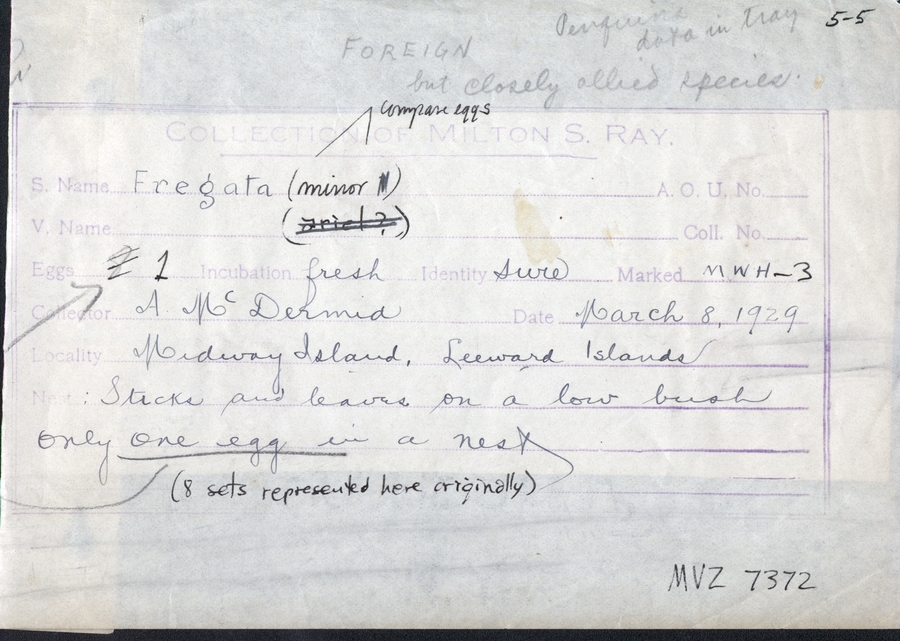 Penguins data in tray 5-5
FOREIGN
but closely allied species.
compare eggs
COLLECTION OF MILTON S. RAY.
S. Name Fregata (minor) A. O. U. No.
V. Name (ariel?) Coll. No.
Eggs 1 Incubation fresh Identity sure Marked MWH-3
Collector A McDermid Date March 8, 1929
Locality Midway Island, Leeward Islands
Nest: Sticks and leaves on a low bush
only one egg in a nest
(8 sets represented here originally)
MVZ 7372